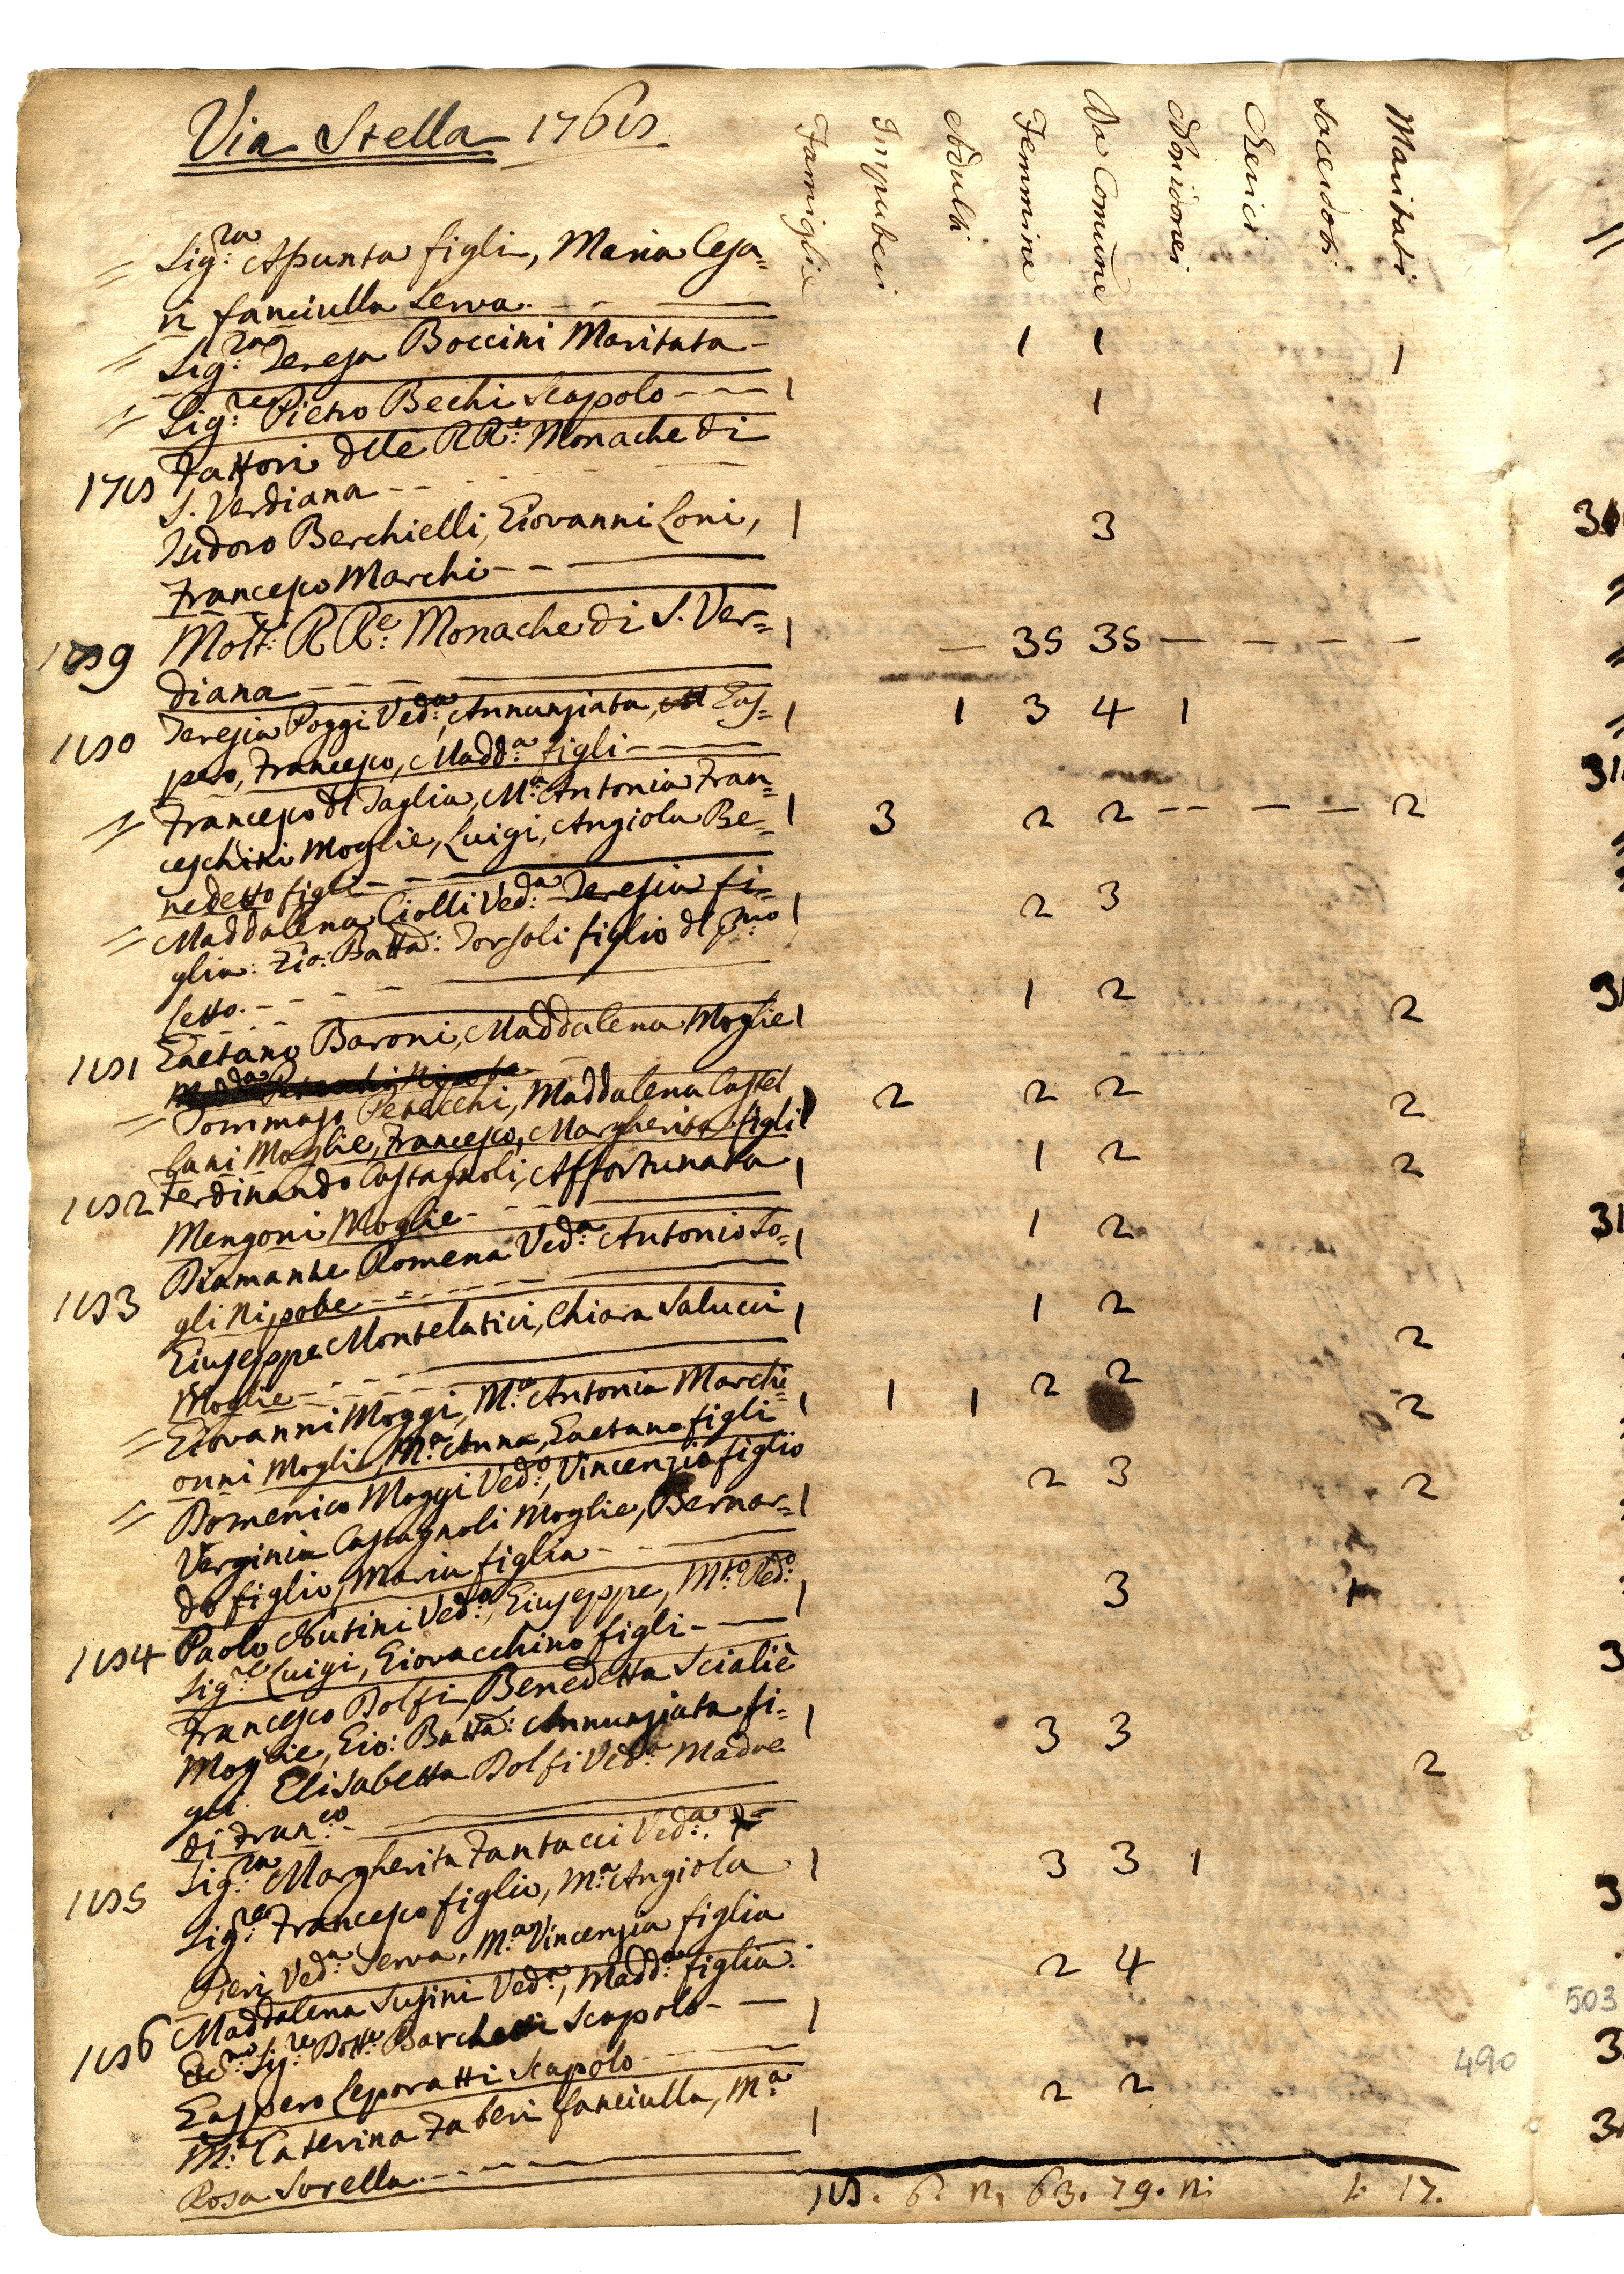 Via Stella 176
Famiglie Impuberi Adulti Femmine Da Comune Non Cherici Sacerdoti Maritati
= Sig:ra Asunta figli, Maria Cesa=
ri fanciulla Serva.
= Sig:ra Teresa Boccini Maritata 1 1 1
= Sig:re Pietro Bechi Scapolo 1 1
Fattori dlle RR:e Monache di
S. Verdiana
Isidoro Berchielli, Giovanni Loni, 1 3
Francesco Marchi
Molt: RR:e Monache di S. Ver= 1 — 35 35 — — — —
diana
Teresia Poggi Ved:a, Annunziata, Gas= 1 1 3 4 1
pero, Francesco, Madd:a figli
= Francesco dl Taglia, M:a Antonia Fran=
ceschini Moglie, Luigi, Angiola Be= 1 3 2 2 -- — — 2
nedetto figli
= Maddalena Ciolli Ved:a Teresia fi= 1 2 3
glia: Gio: Batta: Torsoli figlio dl p:mo
letto.
Gaetano Baroni, Maddalena Moglie 1 1 2 2
= Tommaso Peracchi, Maddalena Castel
lani Moglie, Francesco, Margherita figli 2 2 2 2
Ferdinando Castagnoli, Affortunata 1 1 2 2
Mengoni Moglie
Diamante Romena Ved:a Antonio So= 1 1 2
gli Nipote
Giuseppe Montelatici, Chiara Salucci 1 1 2 2
Moglie
= Giovanni Moggi, M:a Antonia Marchi= 1 1 1 2 2 2
onni Moglie, M:a Anna, Gaetano figli
= Domenico Moggi Ved:o, Vincenzio figlio
Verginia Castagnoli Moglie, Bernar= 1 2 3 2
do figlio, Maria figlia
Paolo Nutini Ved:o, Giuseppe, M:to Ved:o 1 3 1
Sig:re Luigi, Giovacchino figli
Francesco Dolfi, Benedetta Scialiè
Moglie, Gio: Batta: Annunziata fi= 1 3 3 2
gli. Elisabetta Dolfi Ved:a Madre
di Fran:co
Sig:ra Margherita Fantacci Ved:a. 1 3 3 1
Sig:re Francesco figlio, M:a Angiola
Pieri Ved:a Serva, M:a Vincenzia figlia
Maddalena Susini Ved:a, Madd:a figlia. 2 4
Ecc:mo Sig:re Dott:e Scapolo 1
Gaspero Leporatti Scapolo
M:a Caterina Taberi fanciulla, M:a 1 2 2
Rosa Sorella
6. 63. 79. 1. 17.
490
503